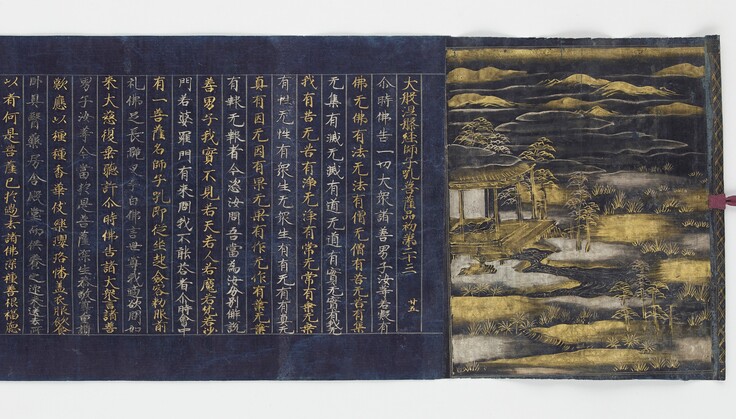 大般涅槃經師子吼菩薩品初第二十三 廿五
尒時佛告一切大衆諸善男子汝等若疑有
佛无佛有法无法有僧无僧有苦无苦有集
无集有滅无滅有道无道有實无實有我无
我有苦无苦有淨无淨有常无常有乘无乘
有性无性有衆生无衆生有有无有有真无
真有因无因有果无果有作无作有業无業
有報无報者今恣汝問吾當為汝分別解說
善男子我實不見若天若人若魔若梵若沙
門若婆羅門有來問我不能荅者尒時會中
有一菩薩名師子吼即從坐起斂容整服前
礼佛足長跪叉手白佛言世尊我適欲問如
來大慈復垂聽許尒時佛告諸大衆言諸善
男子汝等今當於是菩薩深生恭敬尊重讚
歎應以種種香華伎樂瓔珞幡蓋衣服飲食
卧具醫藥房舍殿堂而供養之迎來送去所
以者何是菩薩已於過去諸佛深種善根福德